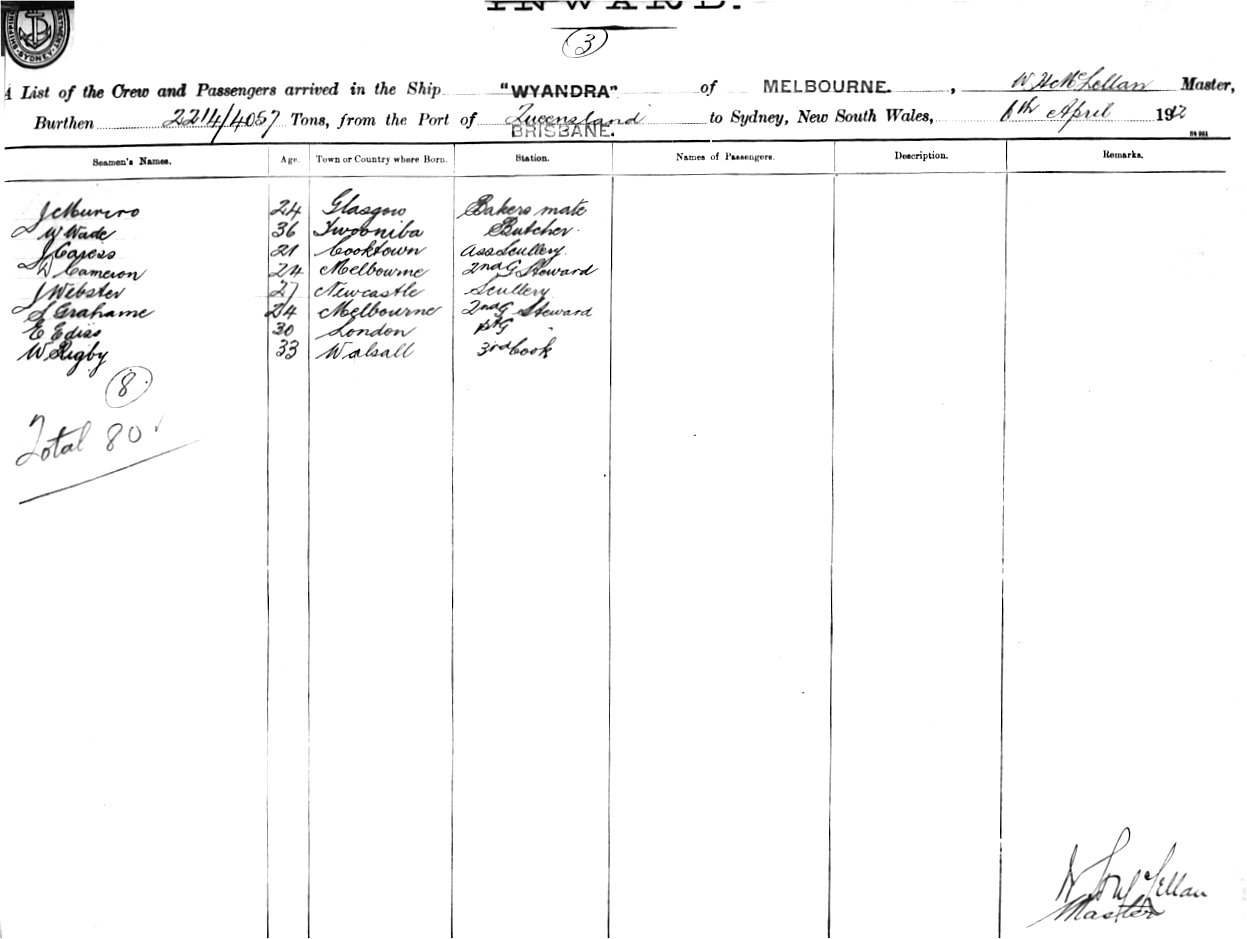 INWARD.
3
SYDNEY
A List of the Crew and Passengers arrived in the Ship "WYANDRA" of MELBOURNE. , W H McLellan Master,
Burthen 2214/4057 Tons, from the Port of Queensland BRISBANE. to Sydney, New South Wales, 6th April 1912
Seamen's Names. Age. Town or Country where Born. Station. Names of Passengers. Description. Remarks.
J C Munro 24 Glasgow Bakers mate
W Wade 36 Butcher
J Caress 21 Cooktown Ass Scullery
D Cameron 24 Melbourne 2nd G Steward
J Webster 27 Newcastle Scullery
S Grahame 24 Melbourne 2nd G Steward
E Ediss 30 London
W Rigby 33 Walsall 3rd Cook
8
Total 80
McLellan
Master